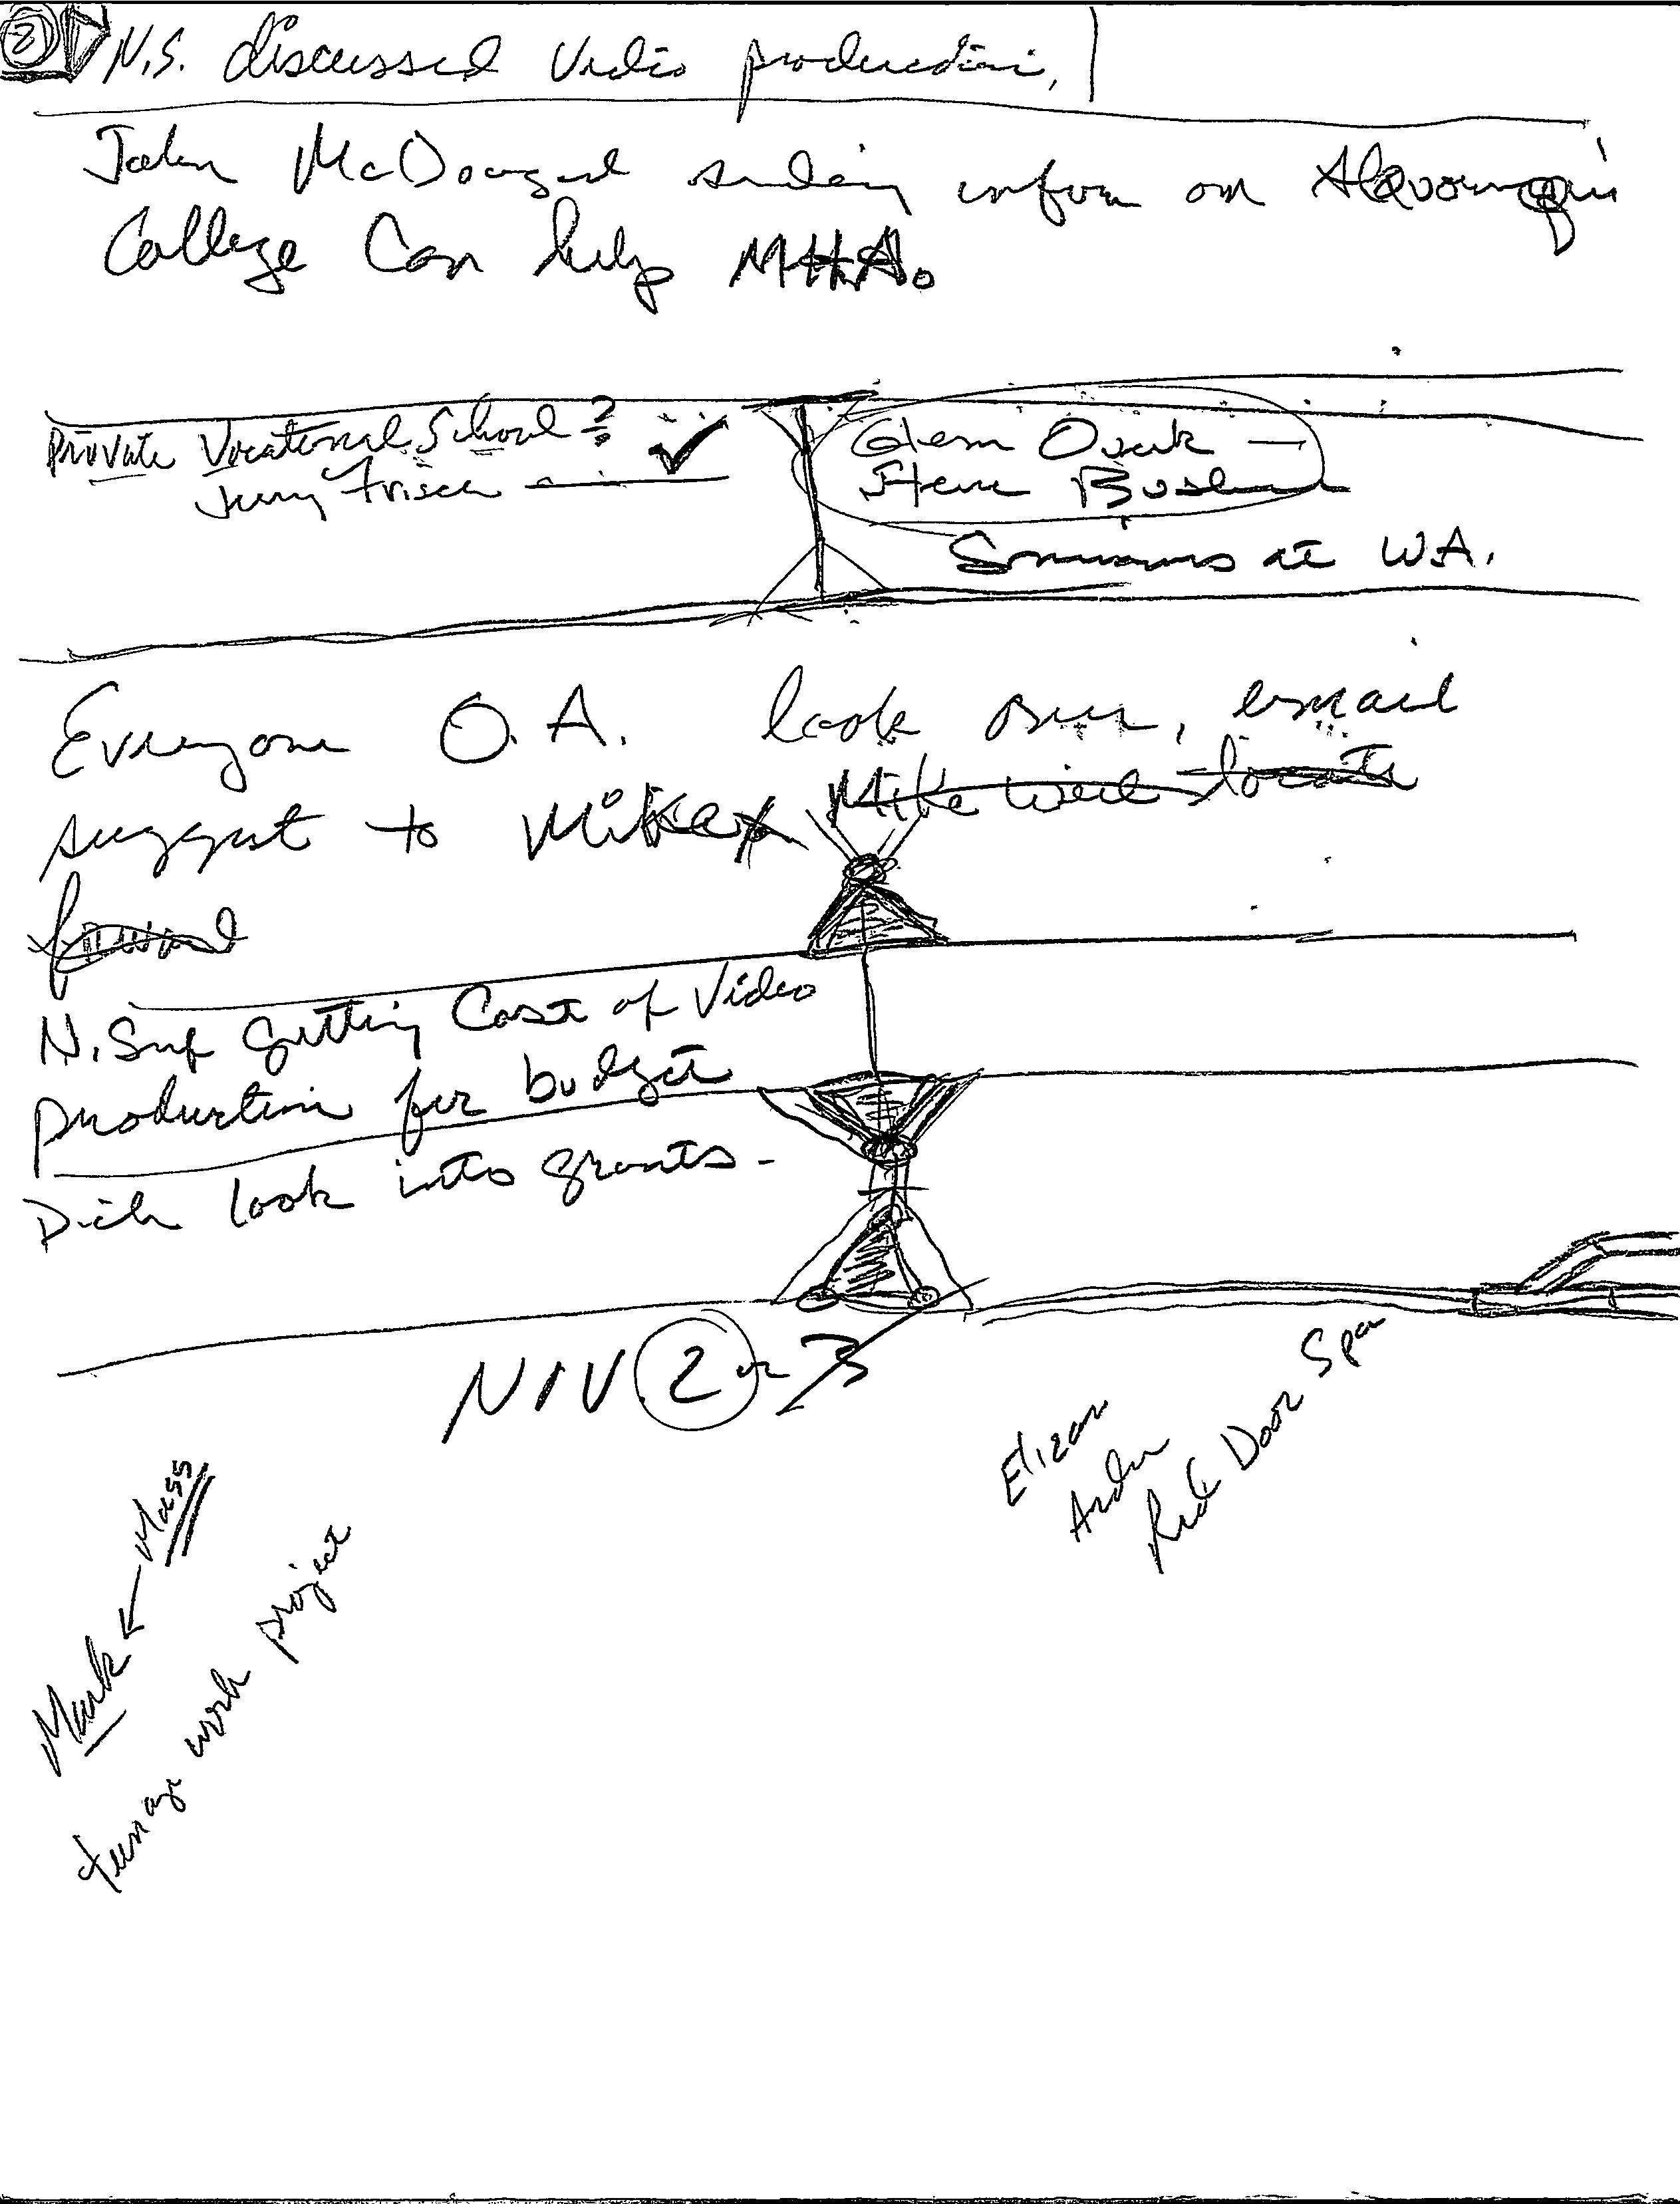 2 N.S. discussed Video production.
John McDougal sending inform on
College Can help MHA.
Private Vocational School?
Jerry Frisch
Glenn
Steve
at WA.
Everyone O.A. look over, email
suggest to Mike Mike will locate
forward
N. getting Cost of Video
production for budget
Dick look into grants -
NOV 2 or 3
Elizar
Arden
Red Door Spa
Mark ← Mass
teenage work project